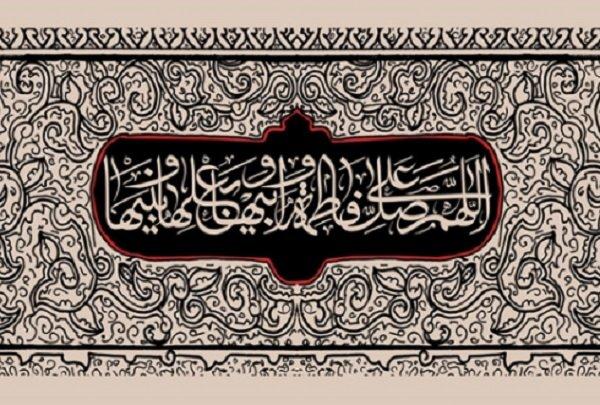 اللهم صل علی فاطمة و ابیها و بعلها و بنیها